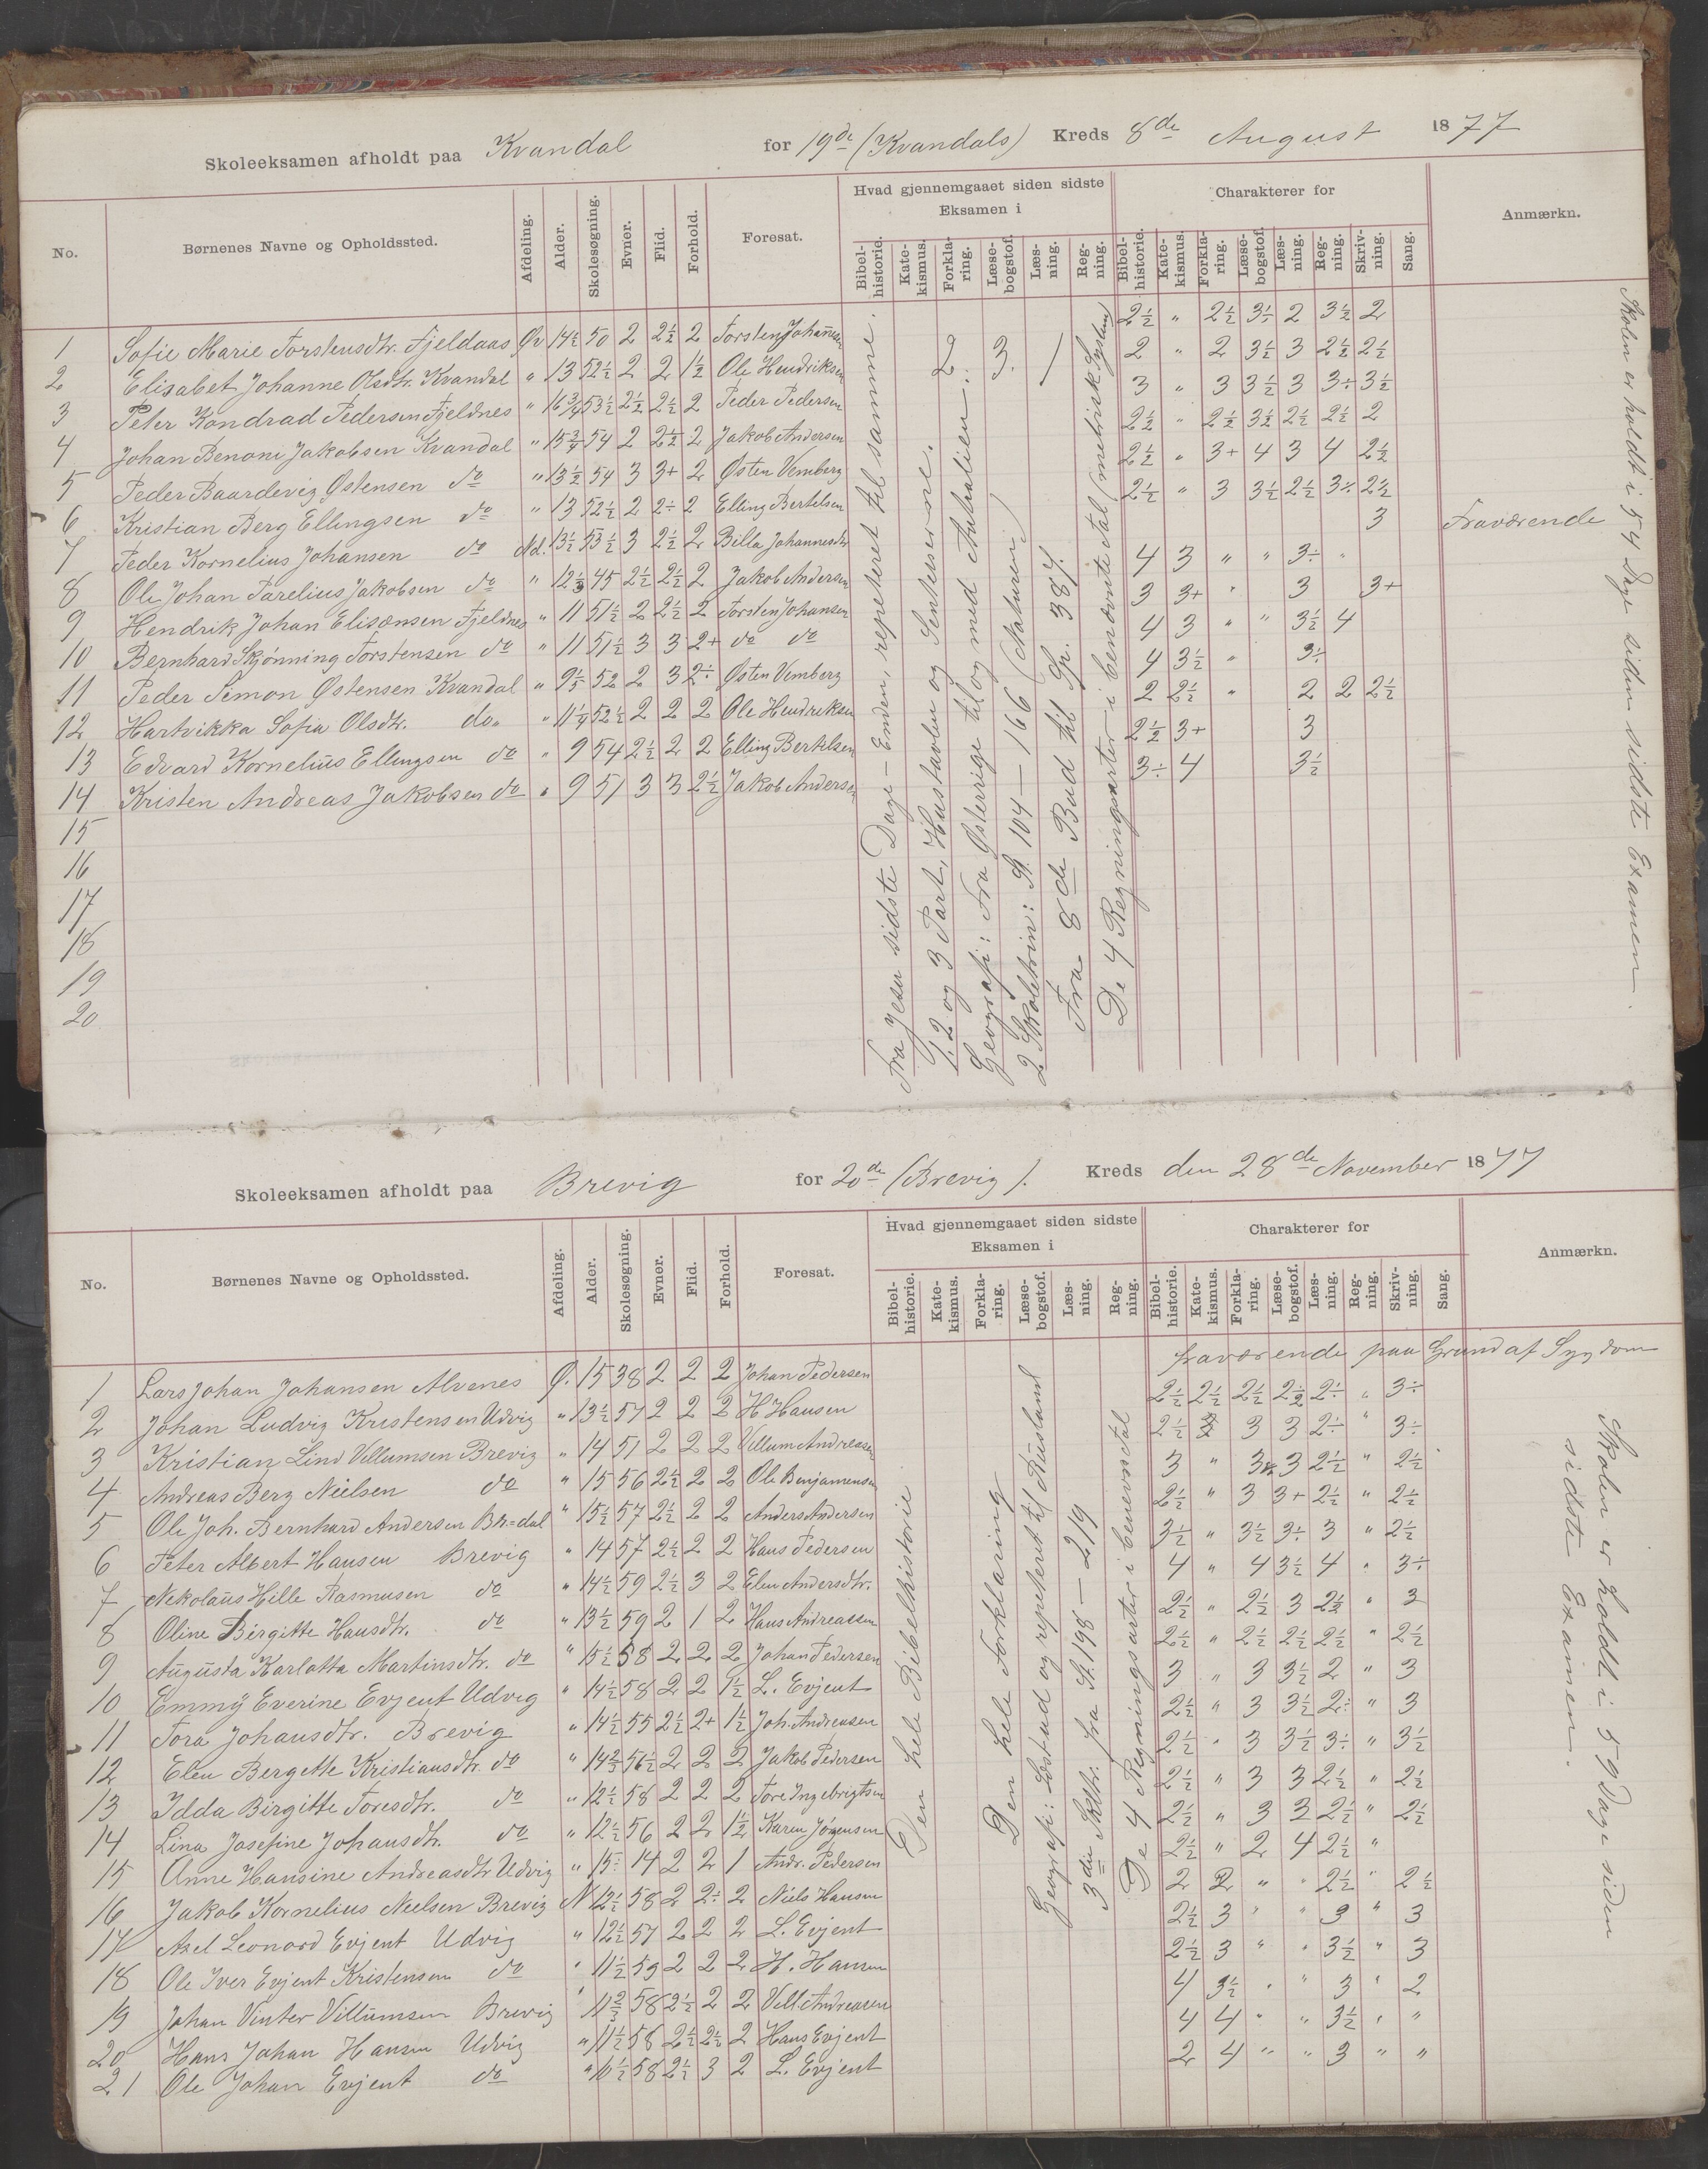 Skoleeksamen afholdt paa Kvandal for 19de (Kvandals) Kreds 8de August 1877
No. Børnenes Navne og Opholdssted. Afdeling. Alder. Skolesøgning. Evner. Flid. Forhold. Foresat. Hvad gjennemgaaet siden sidste Eksamen i Charakterer for Anmærkn.
Bibel-historie. Kate-kismus. Forkla-ring. Læse-bogstof. Læs-ning. Reg-ning. Bibel-historie. Kate-kismus. Forkla-ring. Læse-bogstof. Læs-ning. Reg-ning. Skriv-ning. Sang.
1 Sofie Marie Torstensdtr. Fjeldaas Øv 14½ 50 2 2½ 2 Torsten Johansen 2½ " 2½ 3÷ 2 3½ 2
2 Elisabet Johanne Olsdtr. Kvandal " 13 52½ 2 2 1½ Ole Hendriksen 2 " 2 3½ 3 2½ 2½
3 Peter Kondrad Pedersen Fjeldnes " 16¾ 53½ 2½ 2½ 2 Peder Pedersen 3 " 3 3½ 3 3÷ 3½
4 Johan Benoni Jakobsen Kvandal " 15¾ 54 2 2½ 2 Jakob Andersen 2½ " 2½ 3½ 2½ 2½ 2
5 Peder Baardevig Østensen do " 13½ 54 3 3+ 2 Østen Vemberg 2½ " 3+ 4 3 4 2½
6 Kristian Berg Ellingsen do " 13 52½ 2 2÷ 2 Elling Bertelsen 2½ " 3 3½ 2½ 3÷ 2½
7 Peder Kornelius Johansen do Nd. 13½ 53½ 3 2½ 2 Billa Johannesdtr 3 Fraværende
8 Ole Johan Parelius Jakobsen do " 12⅓ 45 2½ 2½ 2 Jakob Andersen 4 3 " " 3÷ "
9 Hendrik Johan Elisænsen Fjeldnes " 11 51½ 2 2½ 2 Torsten Johansen 3 3+ " 3 3+
10 Bernhard Skjønning Torstensen do " 11 51½ 3 3 2+ do do 4 3 " " 3½ 4
11 Peder Simon Østensen Kvandal " 9⅓ 52 2 3 2÷ Østen Vemberg 4 3½ " 3÷
12 Hartvikka Sofia Olsdtr. do. " 11¼ 52½ 2 2 2 Ole Hendriksen 2 2½ " 2 2 2½
13 Edvard Kornelius Ellingsen do " 9 54 2½ 2 2 Elling Bertelsen 2½ 3+ 3
14 Kristen Andreas Jakobsen do " 9 51 3 3 2½ Jakob Andersen 3÷ 4 3½
15
16
17
18
19
20
Fra Jesu sidste Dage – Enden, repeteret til samme.
1. 2 og 3 Part, Hustavlen og Sentenserne.
Geografi: Fra Østerrige til og med Australien. 2.
2 Skoletrin: St. 104 – 166 (Naturen) 3.
Fra 8de Bud til Sp. 387. 1
De 4 Regningsarter i benævnte Tal (metrisk System)
Skolen er holdt i 54 Dage siden sidste Examen.
Skoleeksamen afholdt paa Brevig for 20de (Brevig). Kreds den 28de November 1877
No. Børnenes Navne og Opholdssted. Afdeling. Alder. Skolesøgning. Evner. Flid. Forhold. Foresat. Hvad gjennemgaaet siden sidste Eksamen i Charakterer for Anmærkn.
Bibel-historie. Kate-kismus. Forkla-ring. Læse-bogstof. Læs-ning. Reg-ning. Bibel-historie. Kate-kismus. Forkla-ring. Læse-bogstof. Læs-ning. Reg-ning. Skriv-ning. Sang.
1 Lars Johan Johansen Alvenes Ø. 15 38 2 2 2 Johan Pedersen fraværende paa Grund af Sygdom
2 Johan Ludvig Kristensen Udvig " 13½ 57 2 2 2 H Hansen 2½ 2½ 2½ 2½ 2÷ " 3÷
3 Kristian Lind Villumsen Brevig " 14 51 2 2 2 Villum Andreasen 2½ 3 3 2÷ " 3÷
4 Andreas Berg Nielsen do " 15 56 2½ 2 2 Ole Benjaminsen 3 " 3 3 2½ " 2½
5 Ole Joh. Bernhard Andersen Br=dal " 15½ 57 2½ 2 2 Anders Andersen 2½ " 3 3+ 2½ " 2½
6 Peter Albert Hansen Brevig " 14 57 2½ 2 2 Hans Pedersen 3½ " 3½ 3÷ 3 " 2½
7 Nekolaus Hille Rasmusen do " 14½ 59 2½ 3 2 Elen Andersdtr. 4 " 4 3½ 4 " 3÷
8 Oline Birgitte Hansdtr. do " 13½ 59 2 1 2 Hans Andreassen 2½ " 2½ 3 2½ " 3
9 Augusta Karlotta Martinsdtr. do " 15½ 58 2 2 2 Johan Pedersen 2½ " 2½ 2½ 2½ " 2½
10 Emmy Everine Evjent Udvig " 14½ 58 2 2 1½ L. Evjent 3 " 3 3½ 2 " 3
11 Tora Johansdtr. Brevig " 14½ 55 2½ 2+ 1½ Joh. Andreasen 2½ " 3 3½ 2÷ " 3
12 Elen Bergette Kristiansdtr. do " 14⅔ 56½ 2 2 2 Jakob Pedersen 2½ " 3 3½ 3÷ " 3½
13 Idda Birgitte Toresdtr. do " 12½ 58 2 2 2 Tore Ingebrigtsen 2½ " 3 3 2½ " 2½
14 Lina Josefine Johansdtr. do " 12½ 56 2 2 1½ Karen Jørgensen 2½ " 3 3 2½ " 2½
15 Anne Hansine Andreasdtr Udvig " 15÷ 14 2 2 1 Andr. Pedersen 2½ " 2 4 2½ "
16 Jakob Kornelius Neelsen Brevig N 12½ 58 2 2÷ 2 Niels Hansen 2 2 " " 2½ " 2½
17 Axel Leonard Evjent Udvig " 12½ 57 2 2 2 L. Evjent 2½ 3 " " 3 " 3
18 Ole Iver Evjent Kristensen do " 11½ 59 2 2 2 H. Hansen 2½ 3 " " 3½ " 3
19 Johan Vinter Villumsen Brevig " 11⅔ 58 2½ 2 2 Vill. Andreasen 4 3½ " " 3 " 2
20 Hans Johan Hansen Udvig " 11½ 58 2½ 2½ 2 Hans Evjent 4 4 " " 3½ " "
21 Ole Johan Evjent do " 10½ 58 2½ 3 2 L. Evjent 2 4 " " 3 " "
Den hele Bibelhistorie
Den hele Forklaring
Geografi: Lostad og repeteret til Rusland
3die Skltr. fra St. 198 – 219
De 4 Regningsarter i benevnte tal
Skolen er holdt i 59 Dage siden
sidste Examen.